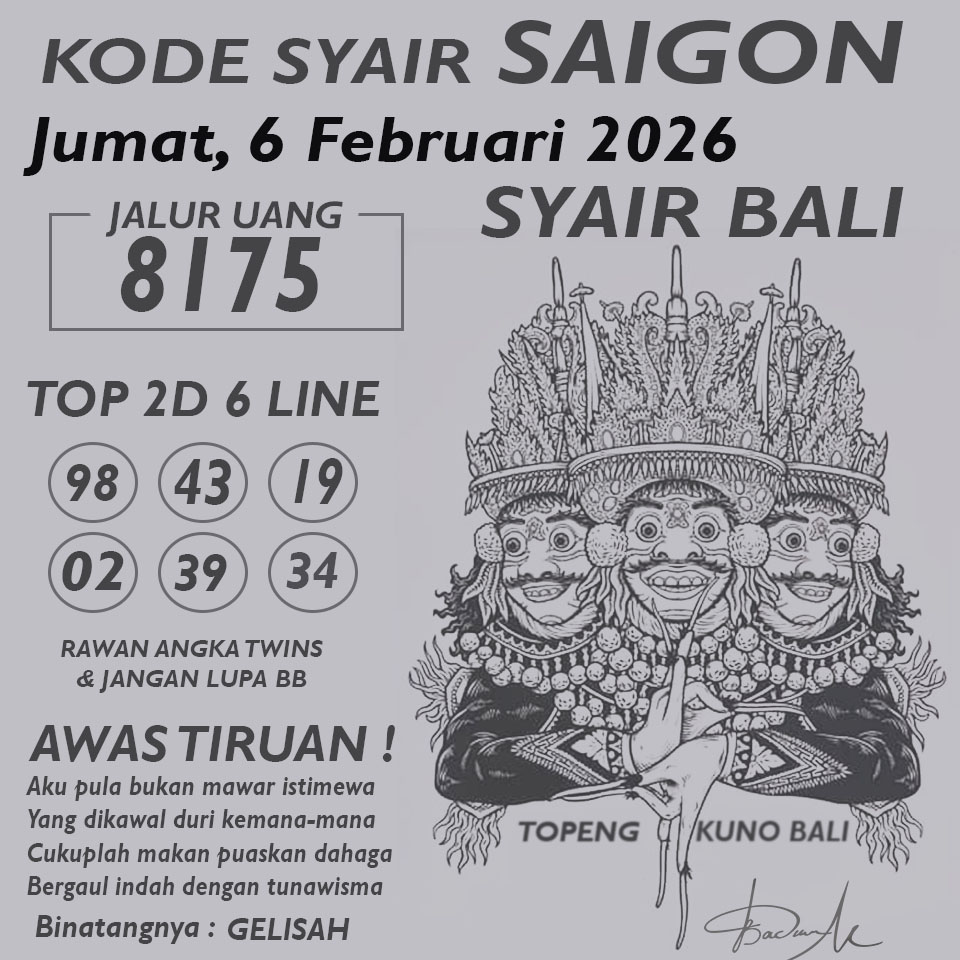 KODE SYAIR SAIGON
Jumat, 6 Februari 2026
SYAIR BALI
JALUR UANG
8175
TOP 2D 6 LINE
98 43 19
02 39 34
RAWAN ANGKA TWINS
& JANGAN LUPA BB
AWAS TIRUAN !
Aku pula bukan mawar istimewa
Yang dikawal duri kemana-mana
Cukuplah makan puaskan dahaga
Bergaul indah dengan tunawisma
Binatangnya : GELISAH
TOPENG KUNO BALI